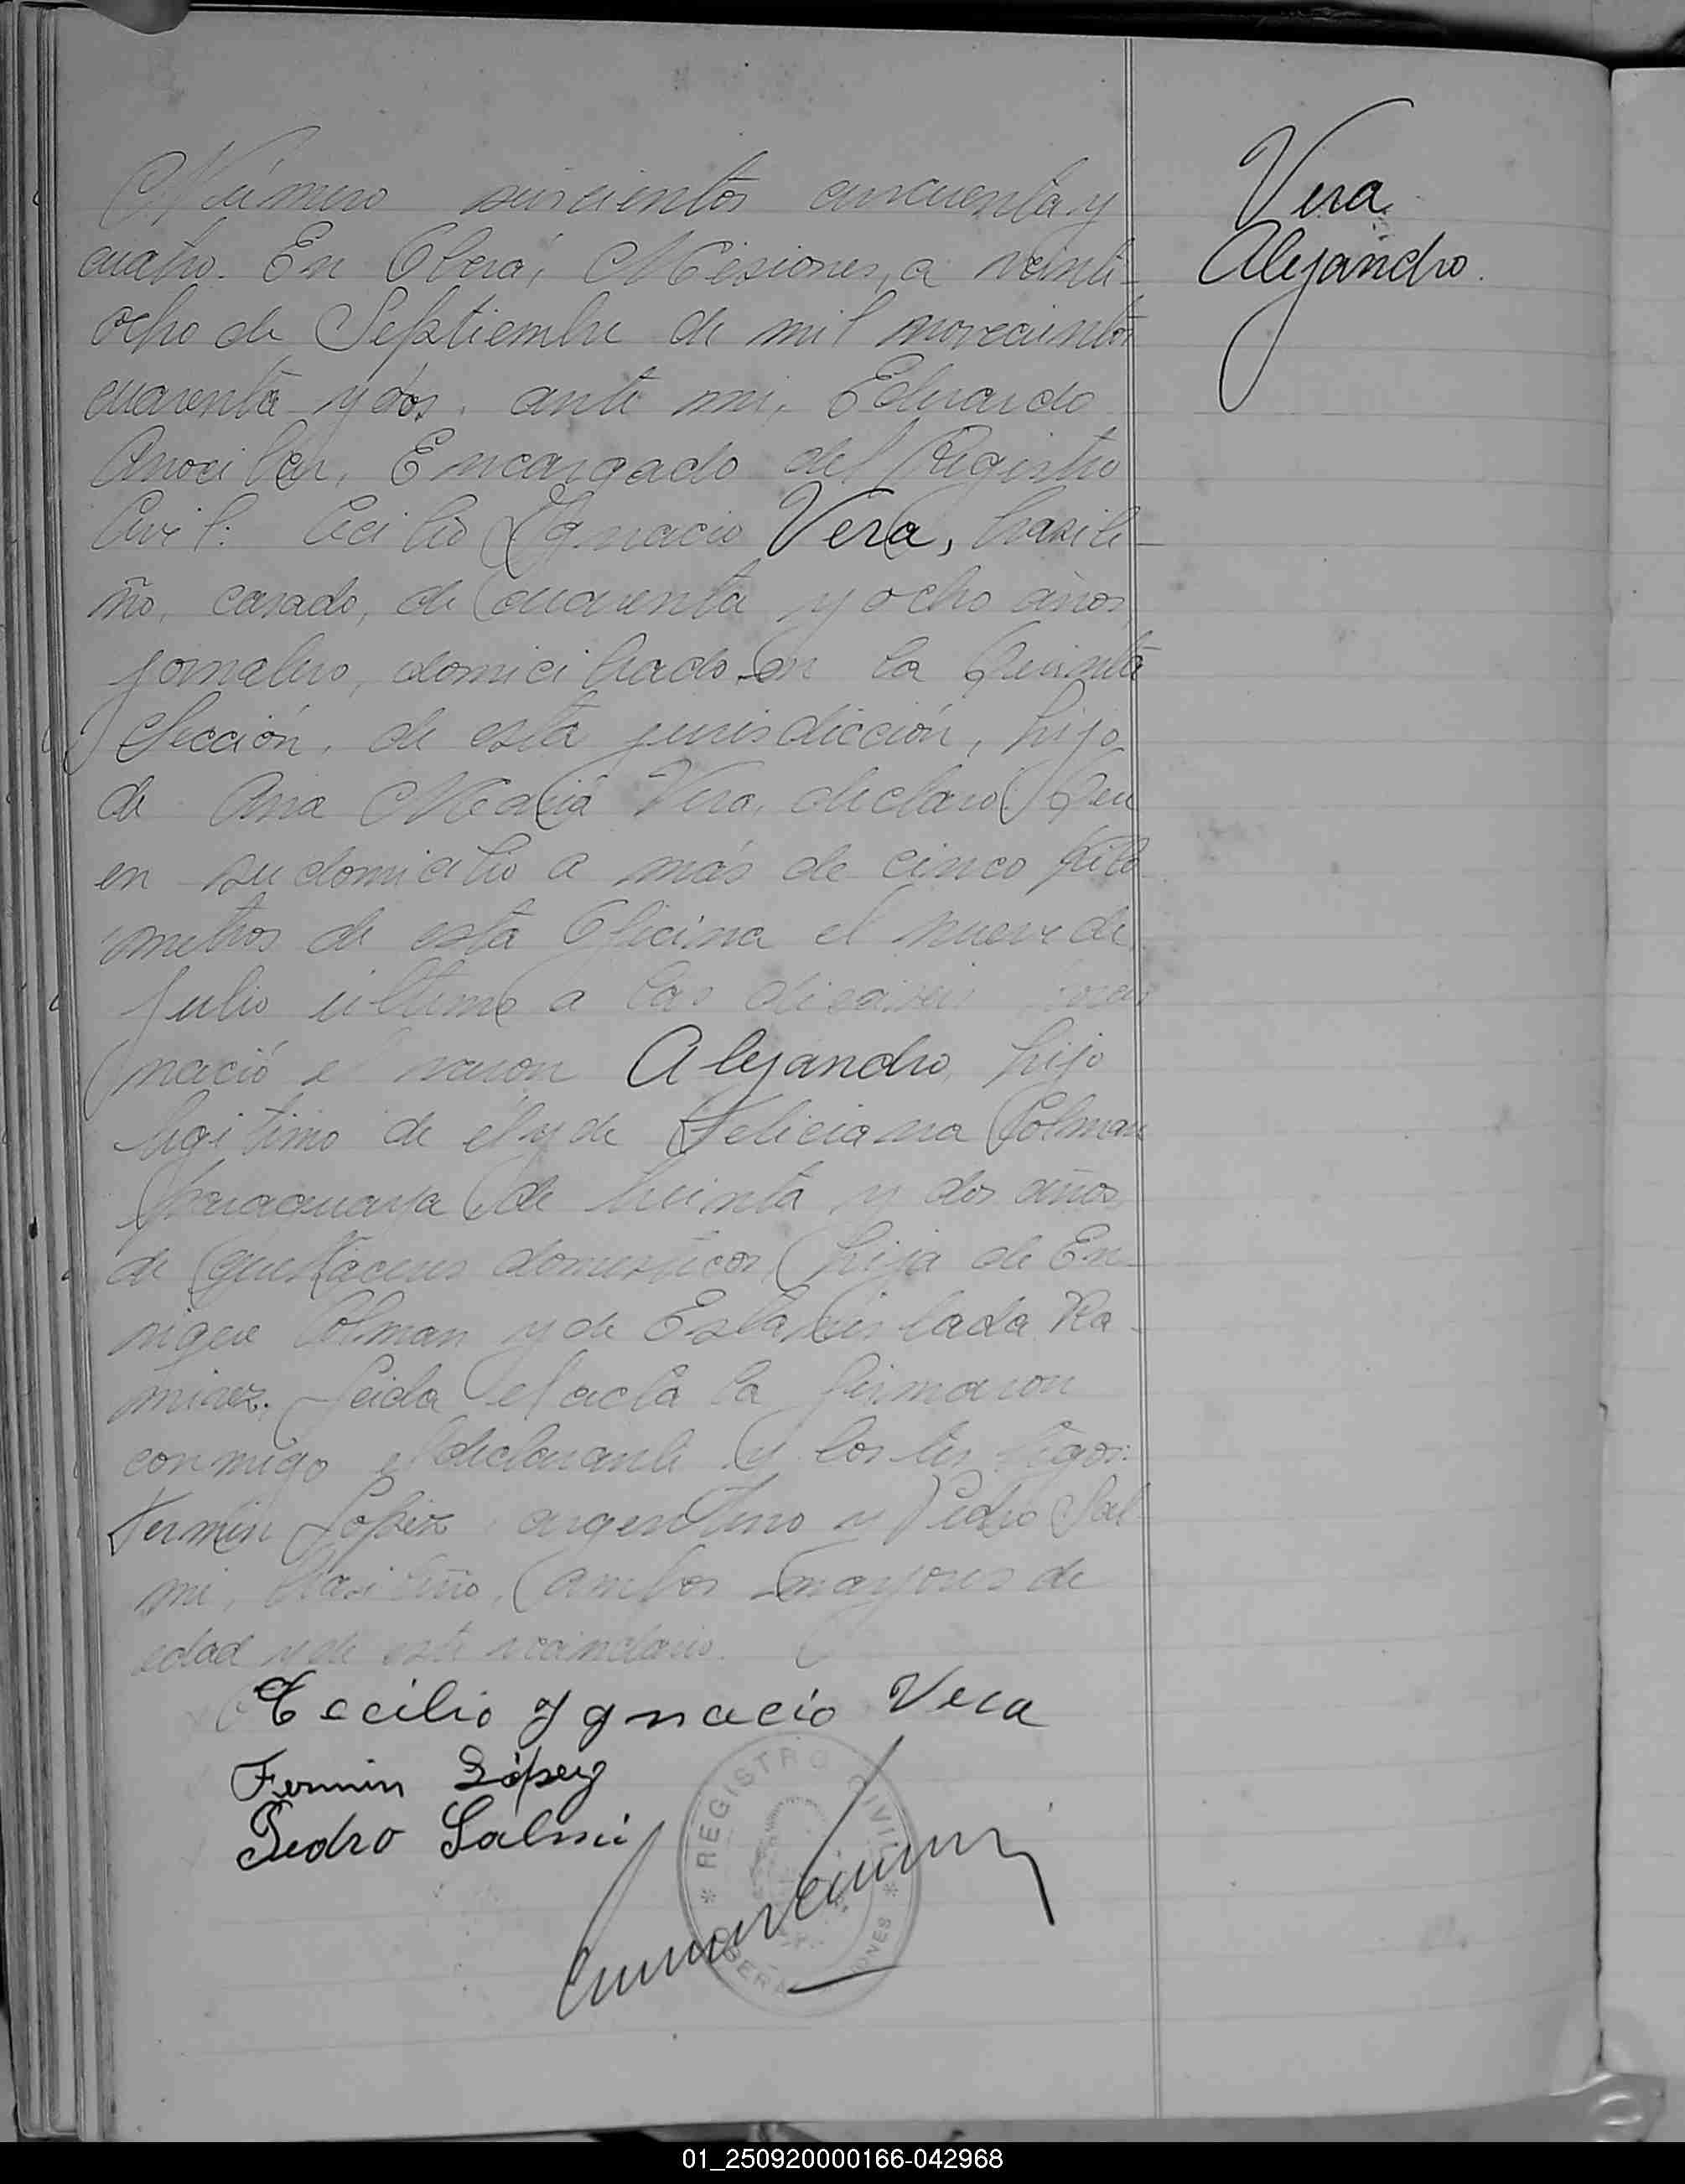 Número seiscientos cincuenta y
cuatro. En Oberá, Misiones, a veinti-
ocho de Septiembre de mil novecientos
cuarenta y dos, ante mi, Eduardo
Encargado del Registro
Civil: Cecilio Ygnacio Vera, brasile-
ño, casado, de cuarenta y ocho años,
jornalero, domiciliado en la Quinta
Sección, de esta jurisdicción, hijo
de Ana María Vera, declaro: Que
en su domicilio a más de cinco kiló
metros de esta Oficina el nueve de
Julio último a las dieciseis horas
nació el varon Alejandro, hijo
legitimo de él y de Feliciana Colman
paraguaya de treinta y dos años,
de quehaceres domesticos, hija de En-
rique Colman y de Estanislada Ra-
mirez. Leida el acta la firmaron
conmigo el declarante y los testigos:
Fermin Lopez argentino y Pedro Sal-
mi, brasileño, ambos mayores de
edad y de este vecindario.
Cecilio Ygnacio Vera
Fermin López
Pedro Salmi
REGISTRO CIVIL
OBERA MISIONES
Vera
Alejandro.
01_250920000166-042968